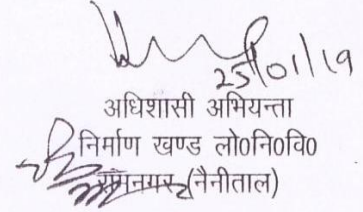 25/01/19
अधिशासी अभियन्ता
निर्माण खण्ड लो0नि0वि0
रामनगर (नैनीताल)